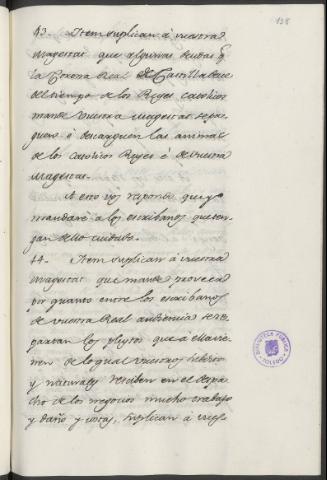 138
43. Item suplican á vuestra
Magestat que algunas deudas q̃
la Corona Real de Castilla deve
del tiempo de los Reyes catolicos
mande vuestra Magestat se pa-
guen é descarguen las animas
de los catolicos Reyes é de vuestra
Magestat.
A esto vos respondo que yo
mandaré a los escribanos que ten-
gan dello cuidado.
44. Item suplican á vuestra
Magestat que mande proveer
por quanto entre los escribanos
de vuestra Real audiencia se re-
partan los pleytos que á ella vie-
nen de lo qual vuestros subditos
y naturales resciben en el despa-
cho de los negocios mucho trabajo
y daño y costas, suplican á vues-
BIBLIOTECA PUBLICA
TOLEDO